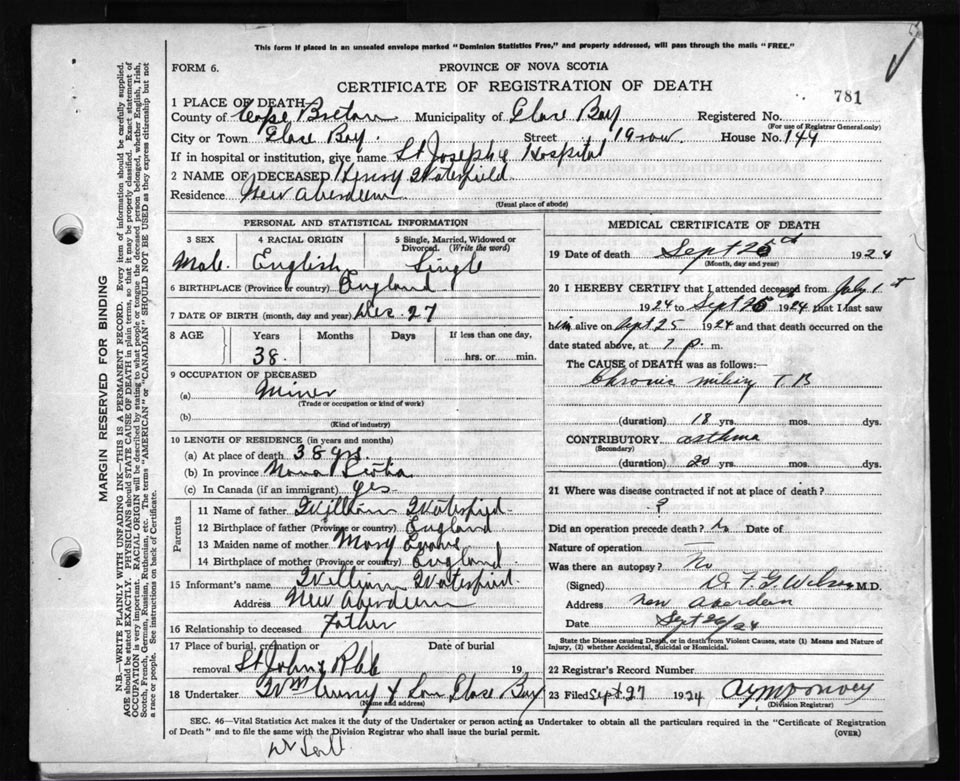 This form if placed in an unsealed envelope marked "Dominion Statistics Free," and properly addressed, will pass through the mails "FREE."
FORM 6.
PROVINCE OF NOVA SCOTIA
CERTIFICATE OF REGISTRATION OF DEATH
781
1 PLACE OF DEATH
County of Cape Breton Municipality of Glace Bay Registered No.
(For use of Registrar General only)
City or Town Glace Bay. Street 19 row House No. 144
If in hospital or institution, give name St Joseph's Hospital
2 NAME OF DECEASED Henry Waterfield
Residence New Aberdeen
(Usual place of abode)
PERSONAL AND STATISTICAL INFORMATION
3 SEX 4 RACIAL ORIGIN 5 Single, Married, Widowed or Divorced. (Write the word)
Male. English Single
6 BIRTHPLACE (Province or country) England
7 DATE OF BIRTH (month, day and year) Dec. 27
8 AGE Years Months Days If less than one day,
38. hrs. or min.
9 OCCUPATION OF DECEASED
(a) Miner
(Trade or occupation or kind of work)
(b)
(Kind of industry)
10 LENGTH OF RESIDENCE (in years and months)
(a) At place of death 38 yrs.
(b) In province Nova Scotia
(c) In Canada (if an immigrant) yes
Parents
11 Name of father William Waterfield
12 Birthplace of father (Province or country) England
13 Maiden name of mother Mary
14 Birthplace of mother (Province or country) England
15 Informant's name William Waterfield.
Address New Aberdeen
16 Relationship to deceased Father
17 Place of burial, cremation or removal St John's Date of burial 19
18 Undertaker Wm Curry & Son Glace Bay
(Name and address)
MEDICAL CERTIFICATE OF DEATH
19 Date of death Sept 25th 1924
(Month, day and year)
20 I HEREBY CERTIFY that I attended deceased from July 1st
1924 to Sept 25th 1924 that I last saw
him alive on Sept 25 1924 and that death occurred on the
date stated above, at 7 p. m.
The CAUSE of DEATH was as follows:
Chronic miliary T.B
(duration) 18 yrs. mos. dys.
CONTRIBUTORY asthma
(Secondary)
(duration) 20 yrs. mos. dys.
21 Where was disease contracted if not at place of death?
?
Did an operation precede death? No Date of
Nature of operation
Was there an autopsy? No
(Signed) Dr F. G. M.D.
Address New Aberdeen
Date Sept 26/24
State the Disease causing Death, or in death from Violent Causes, state (1) Means and Nature of Injury, (2) whether Accidental, Suicidal or Homicidal.
22 Registrar's Record Number
23 Filed Sept. 27 1924
(Division Registrar)
SEC. 46—Vital Statistics Act makes it the duty of the Undertaker or person acting as Undertaker to obtain all the particulars required in the "Certificate of Registration
of Death" and to file the same with the Division Registrar who shall issue the burial permit. (OVER)
MARGIN RESERVED FOR BINDING
N.B.—WRITE PLAINLY WITH UNFADING INK—THIS IS A PERMANENT RECORD. Every item of information should be carefully supplied.
AGE should be stated EXACTLY. PHYSICIANS should STATE CAUSE OF DEATH in plain terms, so that it may be properly classified. Exact statement of
OCCUPATION is very important. RACIAL ORIGIN will be described by stating to what people or tongue the deceased person belonged, whether English, Irish,
Scotch, French, German, Russian, Ruthenian, etc. The terms "AMERICAN" or "CANADIAN" SHOULD NOT BE USED as they express citizenship but not
a race or people. See instructions on back of Certificate.